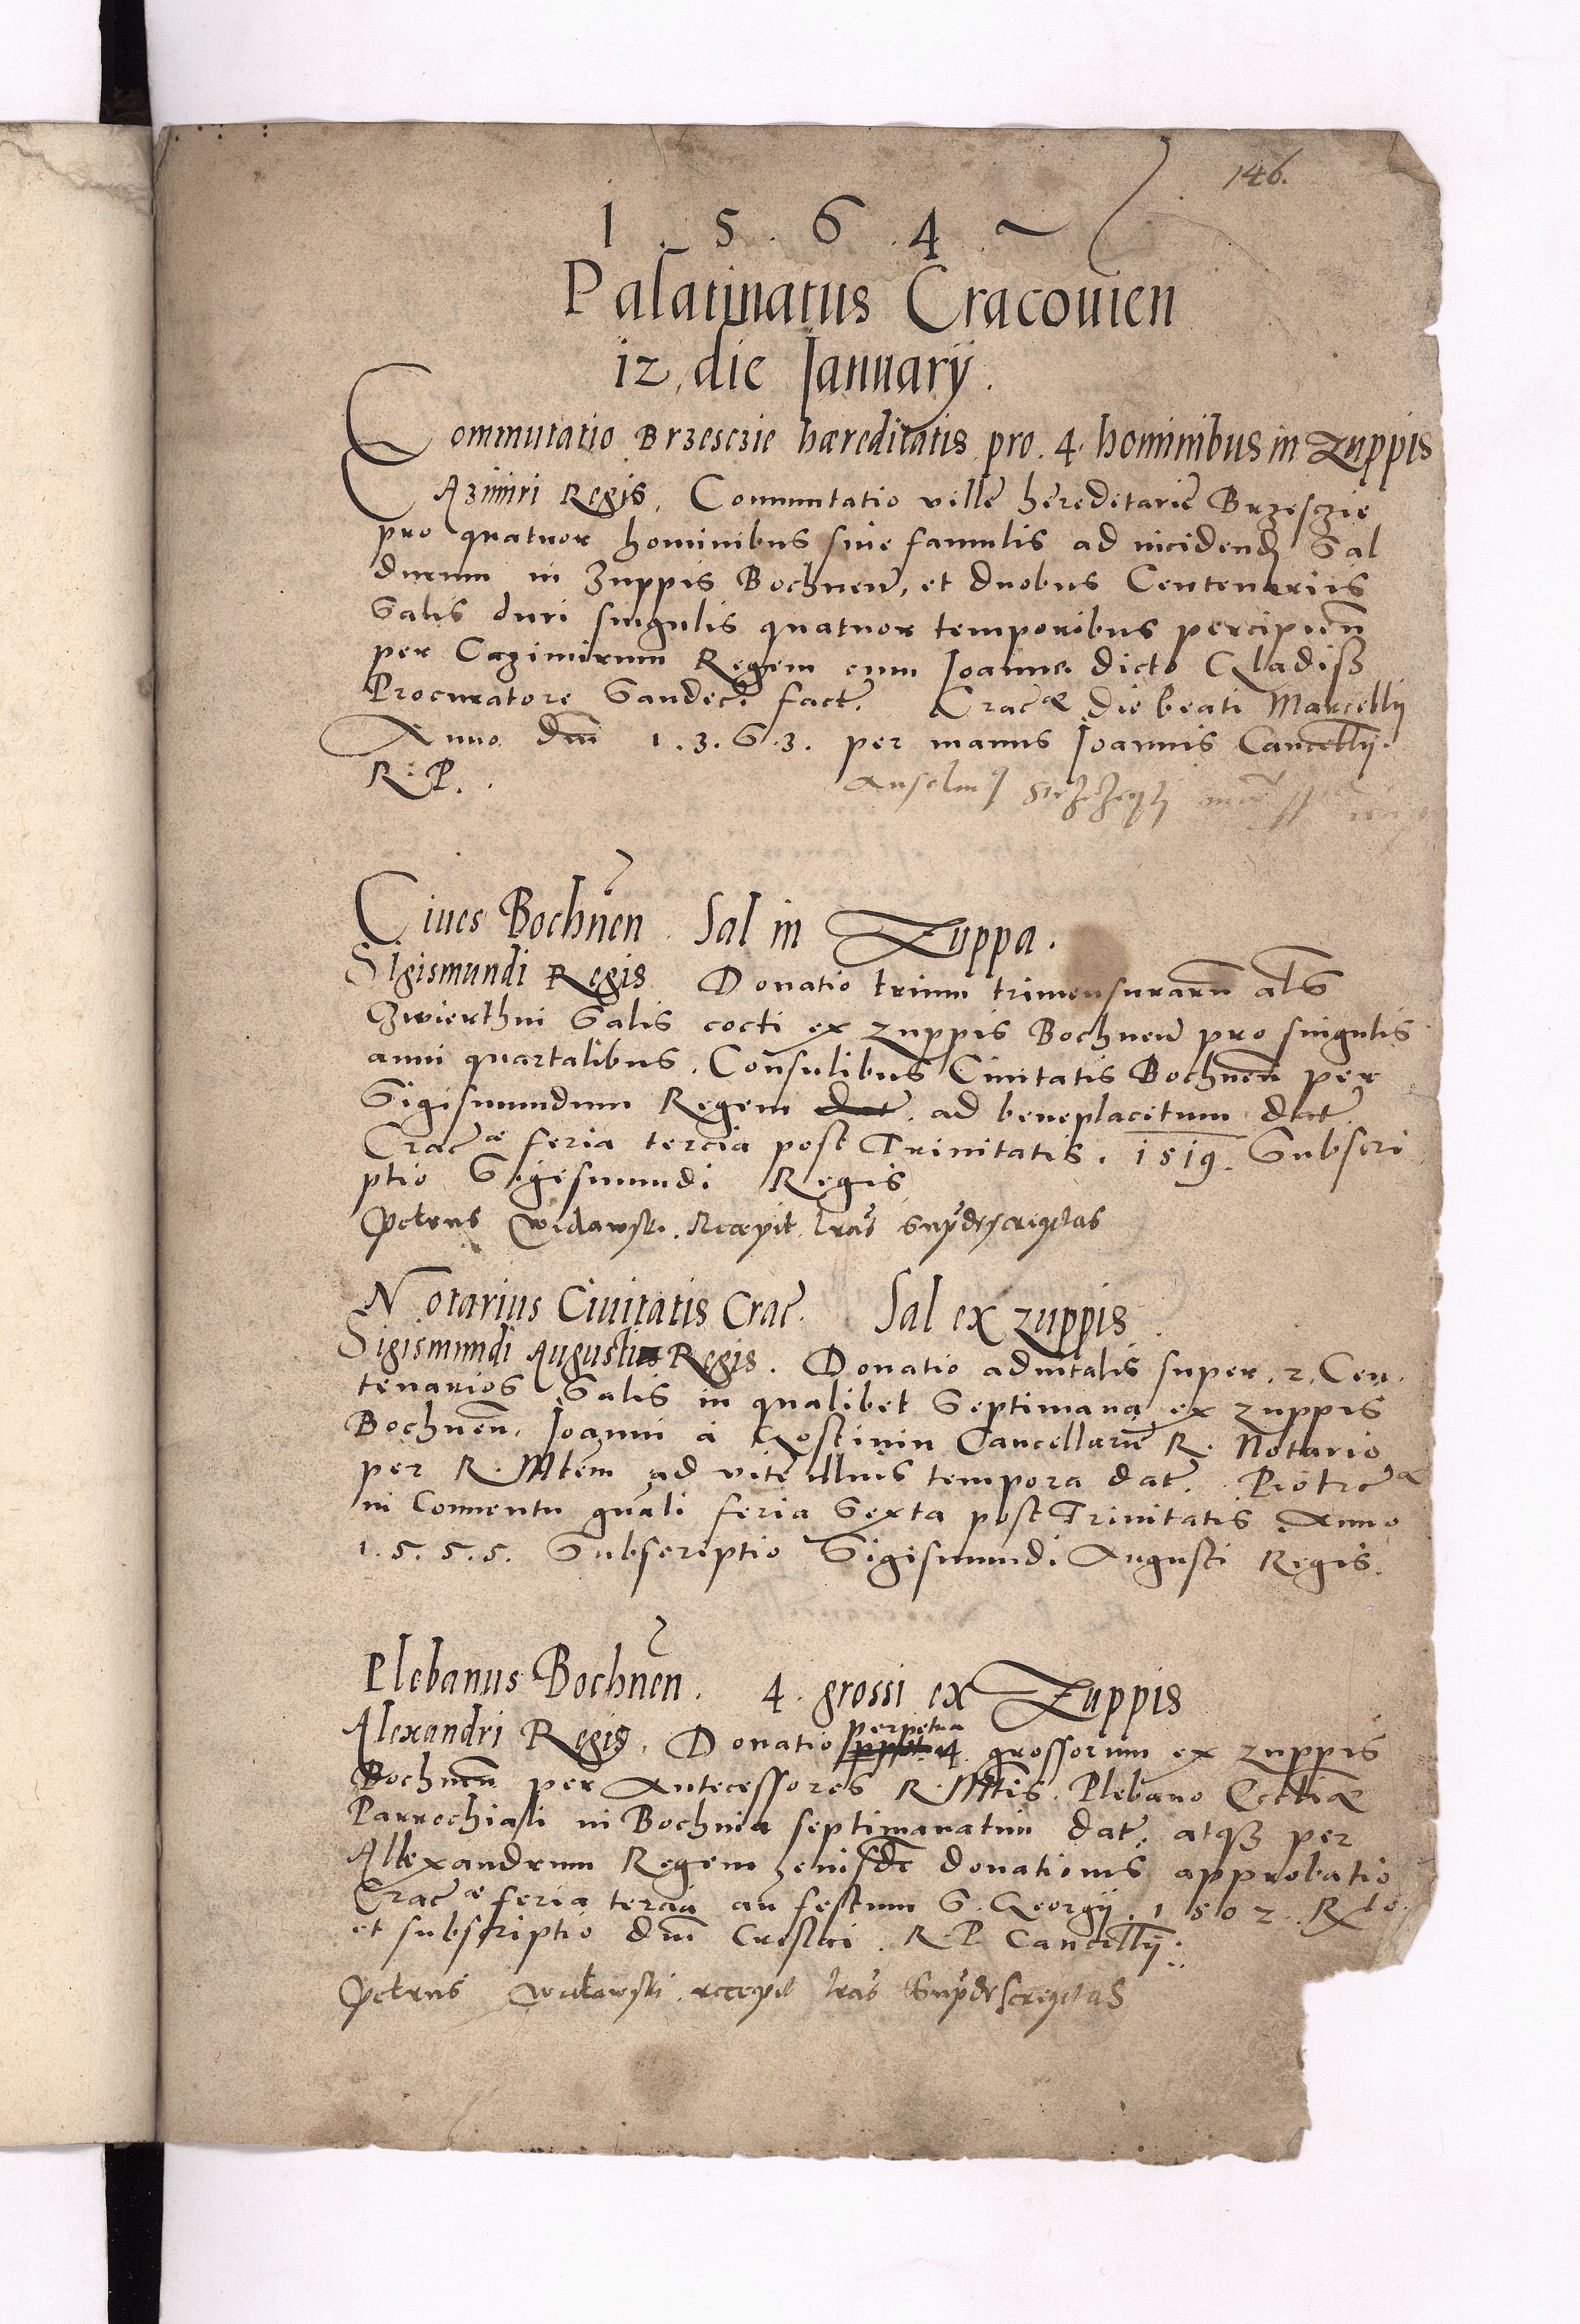 146.
1 . 5 . 6 . 4 .
Palatinatus Cracouien
12, die Januarij.
Commutatio Brzesczie hæreditatis pro . 4 . hominibus in Zuppis
Cazimiri Regis, Commutatio ville hereditarie Brzesczie
pro quatuor hominibus siue famulis ad incidend Sal
durum in Zuppis Bochnen, et duobus Centenariis
Salis duri singulis quatuor temporibus percipien
per Cazimirum Regem cum Joanne dicto Gladisz
Procuratore Sandeci. fact. Cracæ die beati Marcellij
Anno dni 1.3.6.3. per manus Joannis Cancellij.
R: P.
Anselm
Ciues Bochnen . Sal in Zuppa .
Sigismundi Regis Donatio trium trimensurarum als
Czwierthni Salis cocti ex zuppis Bochnen pro singulis
anni quartalibus . Consulibus Ciuitatis Bochnen per
Sigismundum Regem dat. ad beneplacitum dat.
Cracæ feria tercia post Trinitatis . 1519. Subscri
ptio Sigismundi Regis
Petrus Widawski . Recepit lras supderscriptas
Notarius Ciuitatis Crac. Sal ex zuppis
Sigismundi Augusti Regis . Donatio aduitalis super . 2 . Cen
tenarios Salis in qualibet Septimana ex zuppis
Bochnen, Joanni à Gostinin Cancellarie R. Notario
per R. Mtem ad vite illius tempora dat. Piotrca
in Conuentu gnali feria Sexta post Trinitatis Anno
1.5.5.5. Subscriptio Sigismundi Augusti Regis.
Plebanus Bochnen . 4 . grossi ex Zuppis
perpetua
Alexandri Regis . Donatio 4. grossorum ex zuppis
Bochnen per Antecessores R. Mtis. Plebano Ecclïæ
Parrochiali in Bochnia septimanatim dat. atqz per
Allexandrum Regem eiusde donationis approbatio
Cracæ feria tercia an festum S. Georgij . 1502 . Rlo.
et subscriptio dni Creslai . R. P. Cancellij:
Petrus Widawski . recepit lras supderscriptas